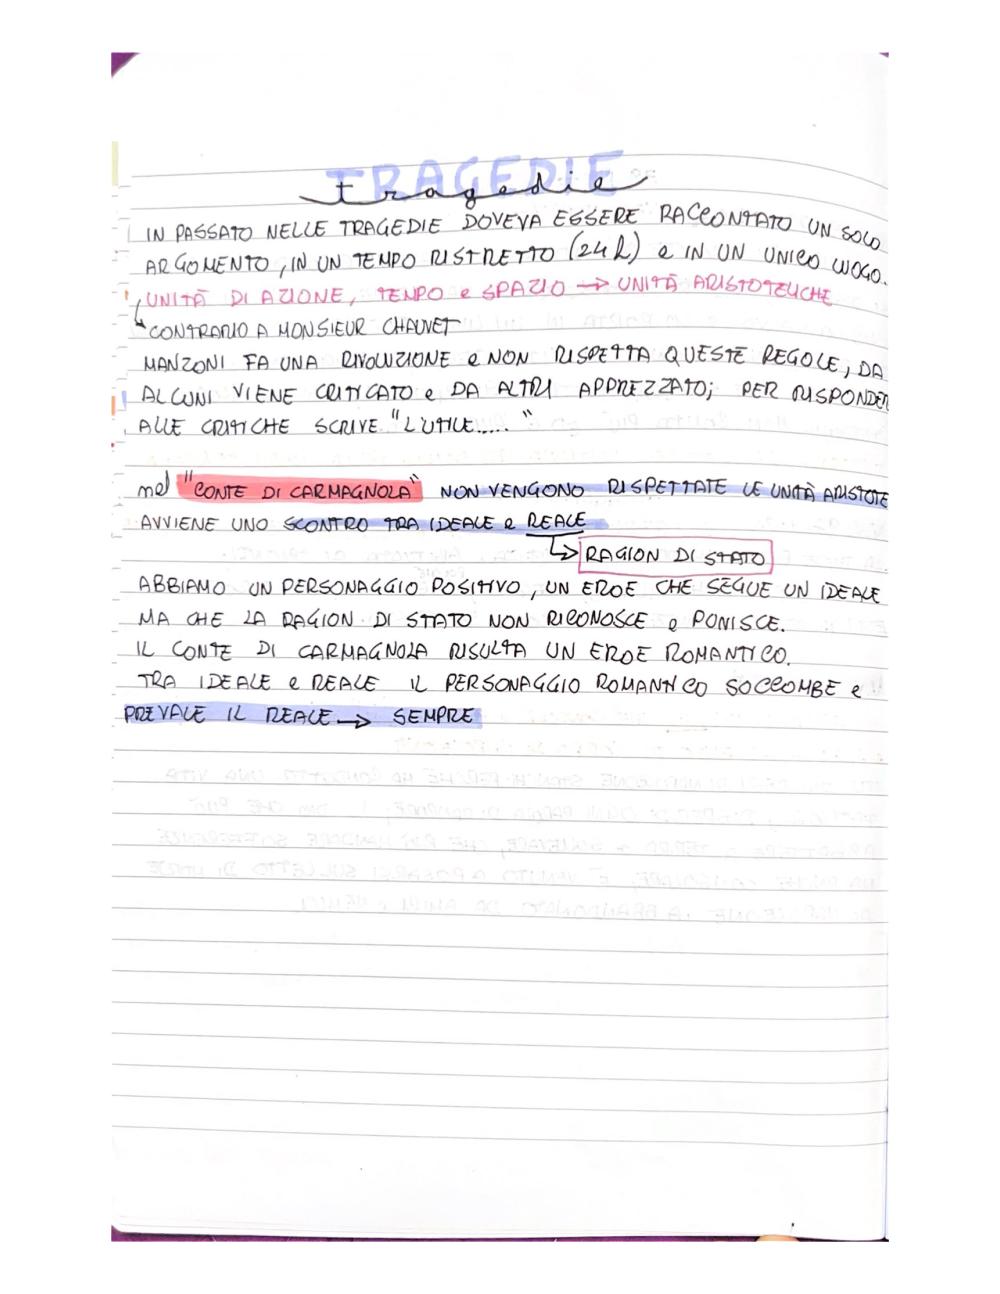 TRAGEDIE
tragedie
IN PASSATO NELLE TRAGEDIE DOVEVA ESSERE RACCONTATO UN SOLO
ARGOMENTO, IN UN TEMPO RISTRETTO (24 h) e IN UN UNICO LUOGO.
UNITÀ DI AZIONE, TEMPO e SPAZIO → UNITÀ ARISTOTELICHE
CONTRARIO A MONSIEUR CHAUVET
MANZONI FA UNA RIVOLUZIONE e NON RISPETTA QUESTE REGOLE, DA
ALCUNI VIENE CRITICATO e DA ALTRI APPREZZATO; PER RISPONDER
ALLE CRITICHE SCRIVE "L'UTILE....."
nel "CONTE DI CARMAGNOLA" NON VENGONO RISPETTATE LE UNITÀ ARISTOTE
AVVIENE UNO SCONTRO TRA IDEALE e REALE
↳ RAGION DI STATO
ABBIAMO UN PERSONAGGIO POSITIVO, UN EROE CHE SEGUE UN IDEALE
MA CHE LA RAGION DI STATO NON RICONOSCE e PUNISCE.
IL CONTE DI CARMAGNOLA RISULTA UN EROE ROMANTICO.
TRA IDEALE e REALE IL PERSONAGGIO ROMANTICO SOCCOMBE e
PREVALE IL REALE → SEMPRE